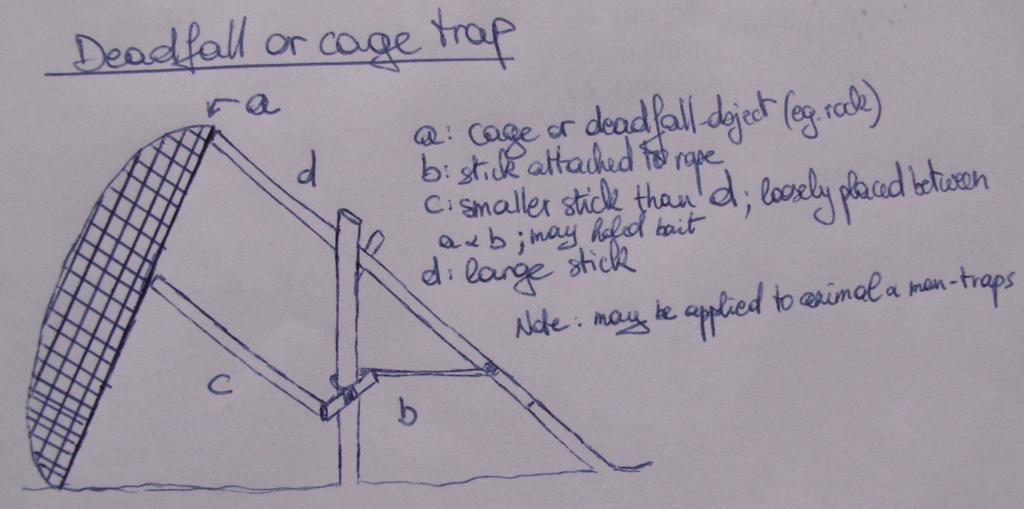 Deadfall or cage trap
a
d
c
b
a: cage or deadfall-object (eg. rock)
b: stick attached to rope
c: smaller stick than d; loosely placed between
a & b; may hold bait
d: large stick
Note: may be applied to animal a man-traps